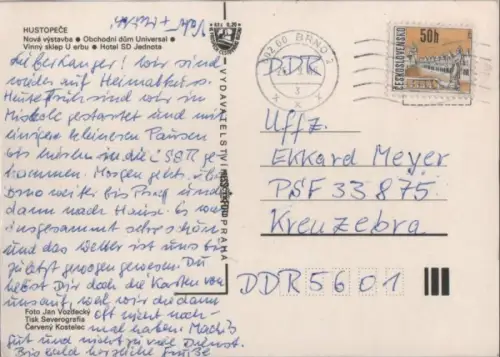 HUSTOPEČE
Nová výstavba • Obchodní dům Universal •
Vinný sklep U erbu • Hotel SD Jednota
Wir sind
wieder auf Heimatkurs.
Heute früh sind wir in
Miskolc gestartet und mit
einigen kleineren Pausen
bis hierhin in die ČSSR ge-
kommen. Morgen geht's über
Brno weiter bis Prag und
dann nach Hause. Es war
insgesamt sehr schön
und das Wetter ist uns bis
zuletzt gewogen gewesen. Du
hebst Dir doch die Karten von
uns auf, weil wir die dann
oft nicht noch-
mal haben. Mach's
gut und nicht zu viel Dienst.
Bis bald herzliche Grüße
Foto Jan Vozdecký
Tisk Severografia
Červený Kostelec
VYDAVATELSTVÍ
PRAHA
602 00 BRNO 2
ČESKOSLOVENSKO
50h
DDR
Uffz.
Ekkard Meyer
PSF 33 875
Kreuzebra
DDR 5601